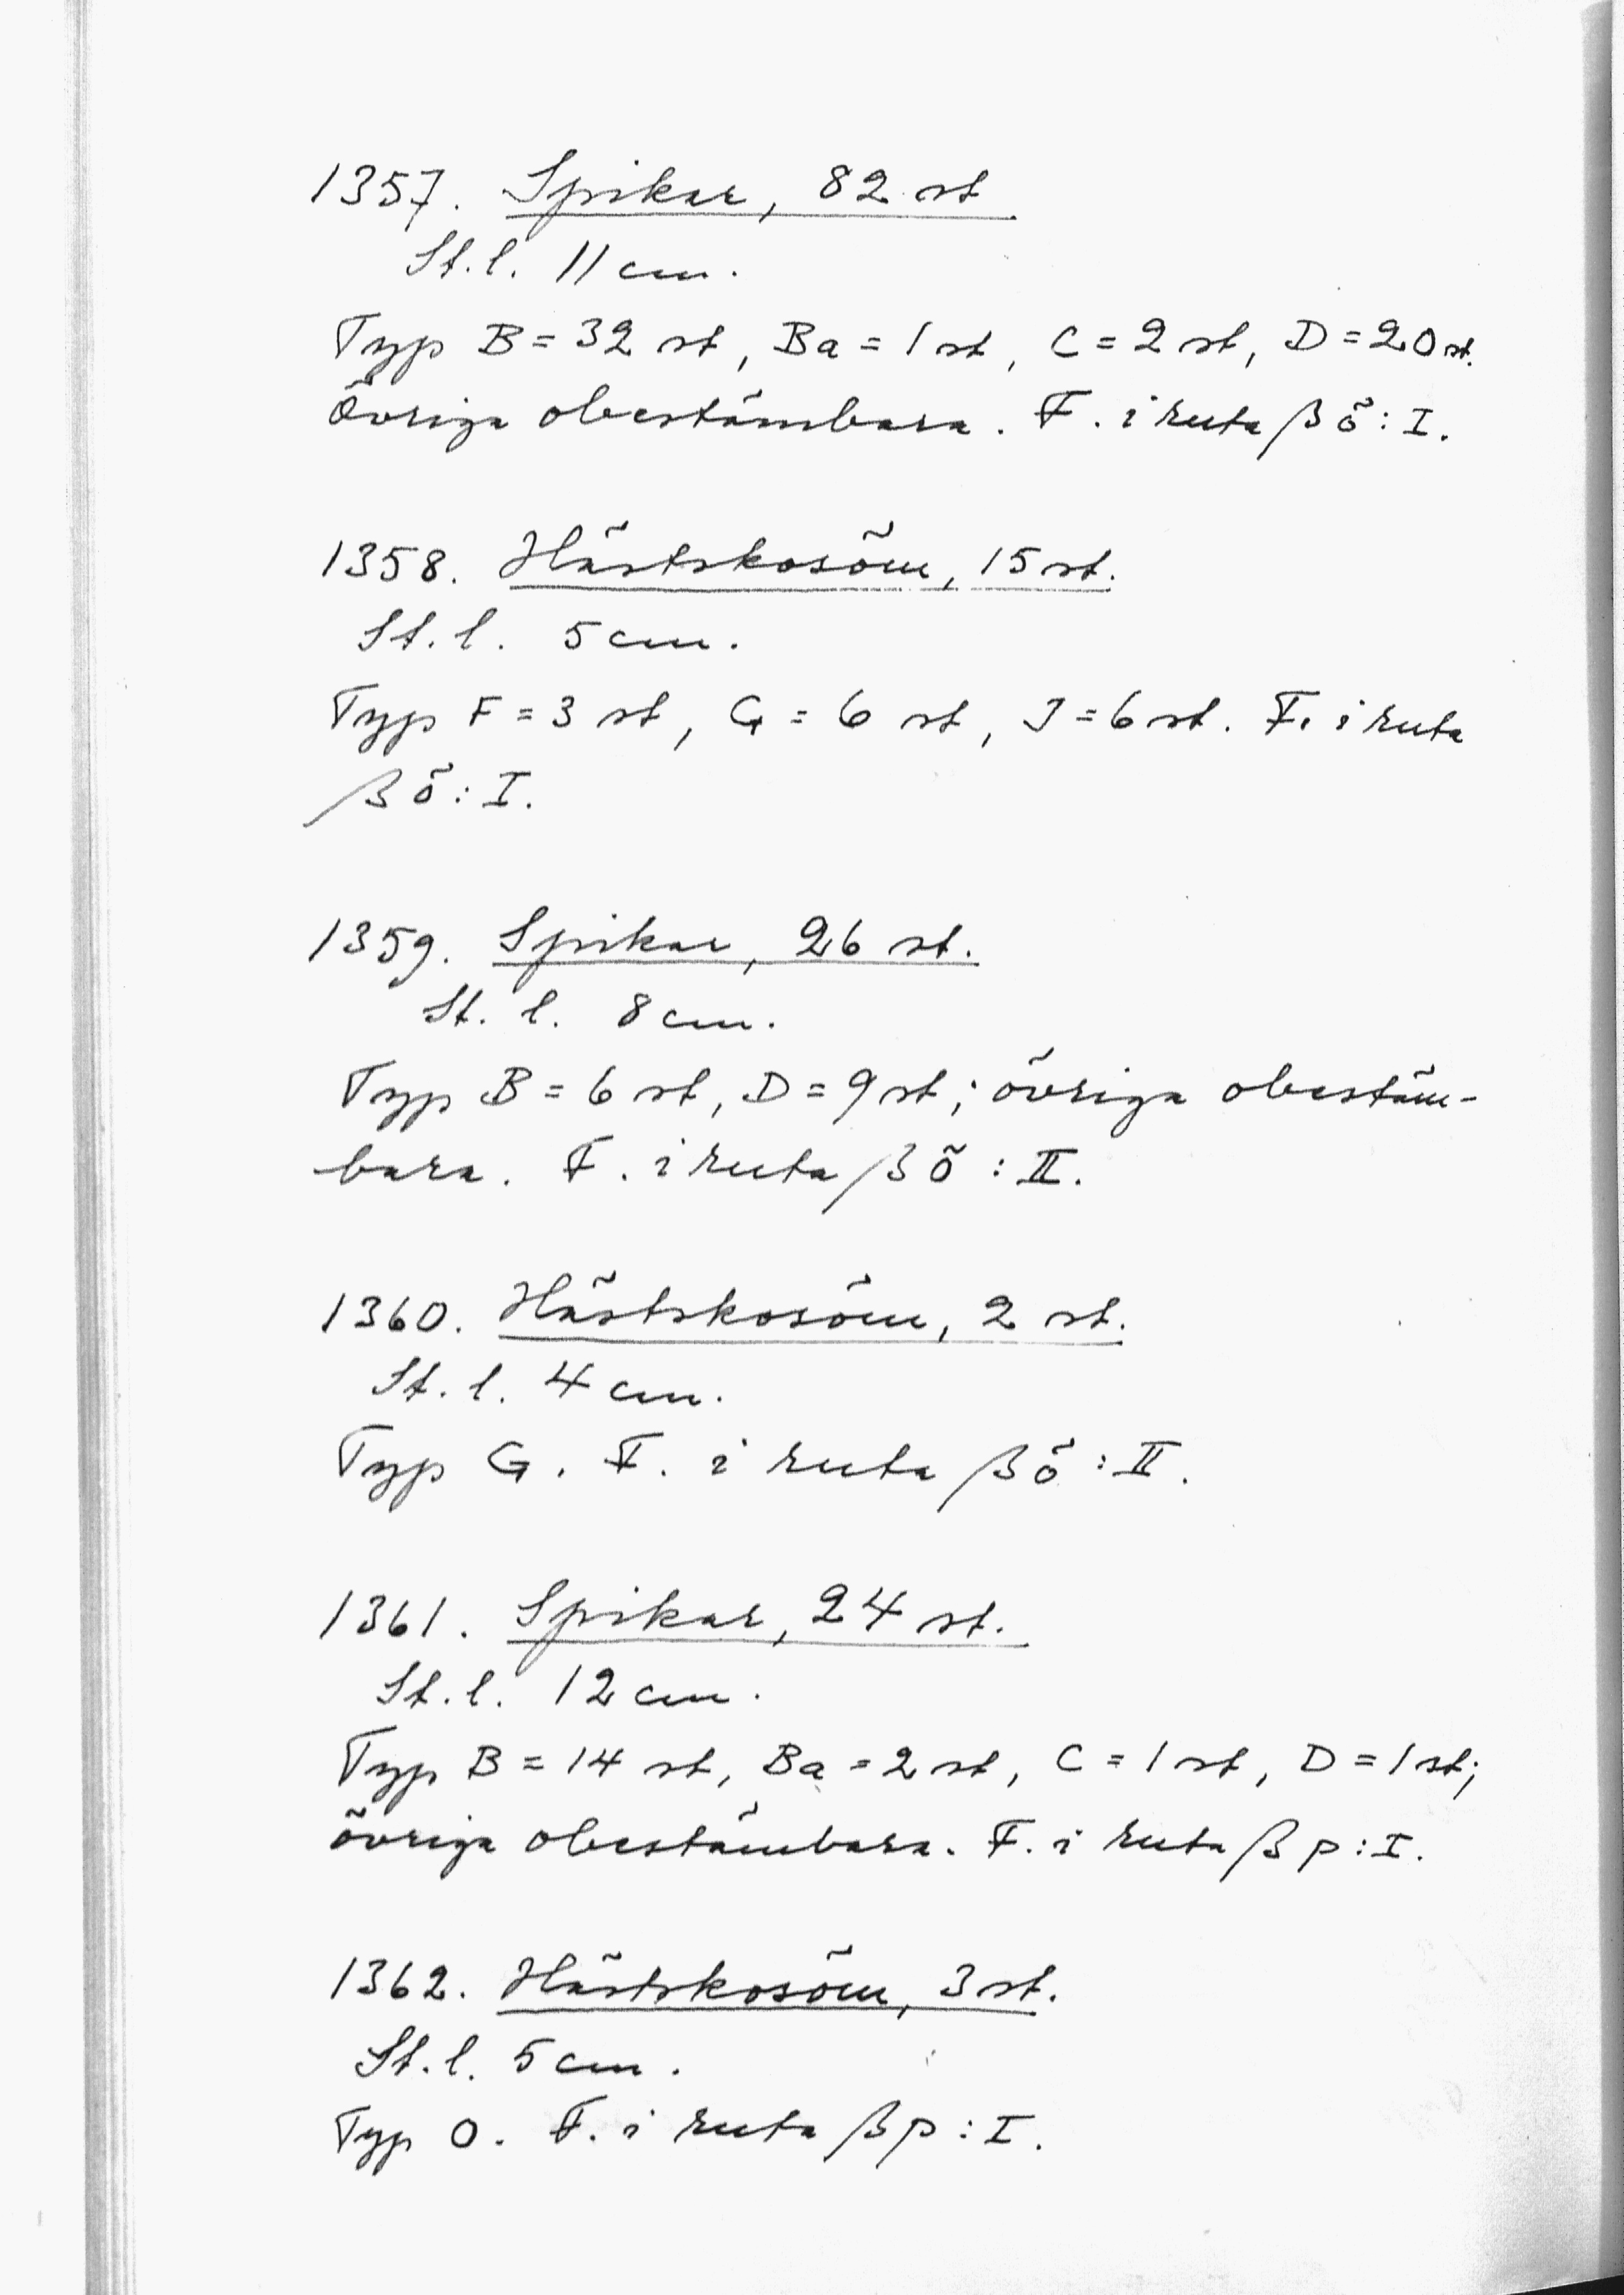 1357. Spikar, 82 st
St.l. 11 cm.
Typ B = 32 st, Ba = 1 st, C = 2 st, D = 20 st.
Övriga obestämbara. F. i ruta β ö : I.
1358. Hästskosöm, 15 st.
St.l. 5 cm.
Typ F = 3 st, G = 6 st, J = 6 st. F. i ruta
β ö : I.
1359. Spikar, 26 st.
St. l. 8 cm.
Typ B = 6 st, D = 9 st; övriga obestäm-
bara. F. i ruta β ö : II.
1360. Hästskosöm, 2 st.
St.l. 4 cm.
Typ G. F. i ruta β ö : II.
1361. Spikar, 24 st.
St.l. 12 cm.
Typ B = 14 st, Ba = 2 st, C = 1 st, D = 1 st;
övriga obestämbara. F. i ruta β p : I.
1362. Hästskosöm, 3 st.
St.l. 5 cm.
Typ O. F. i ruta β p : I.